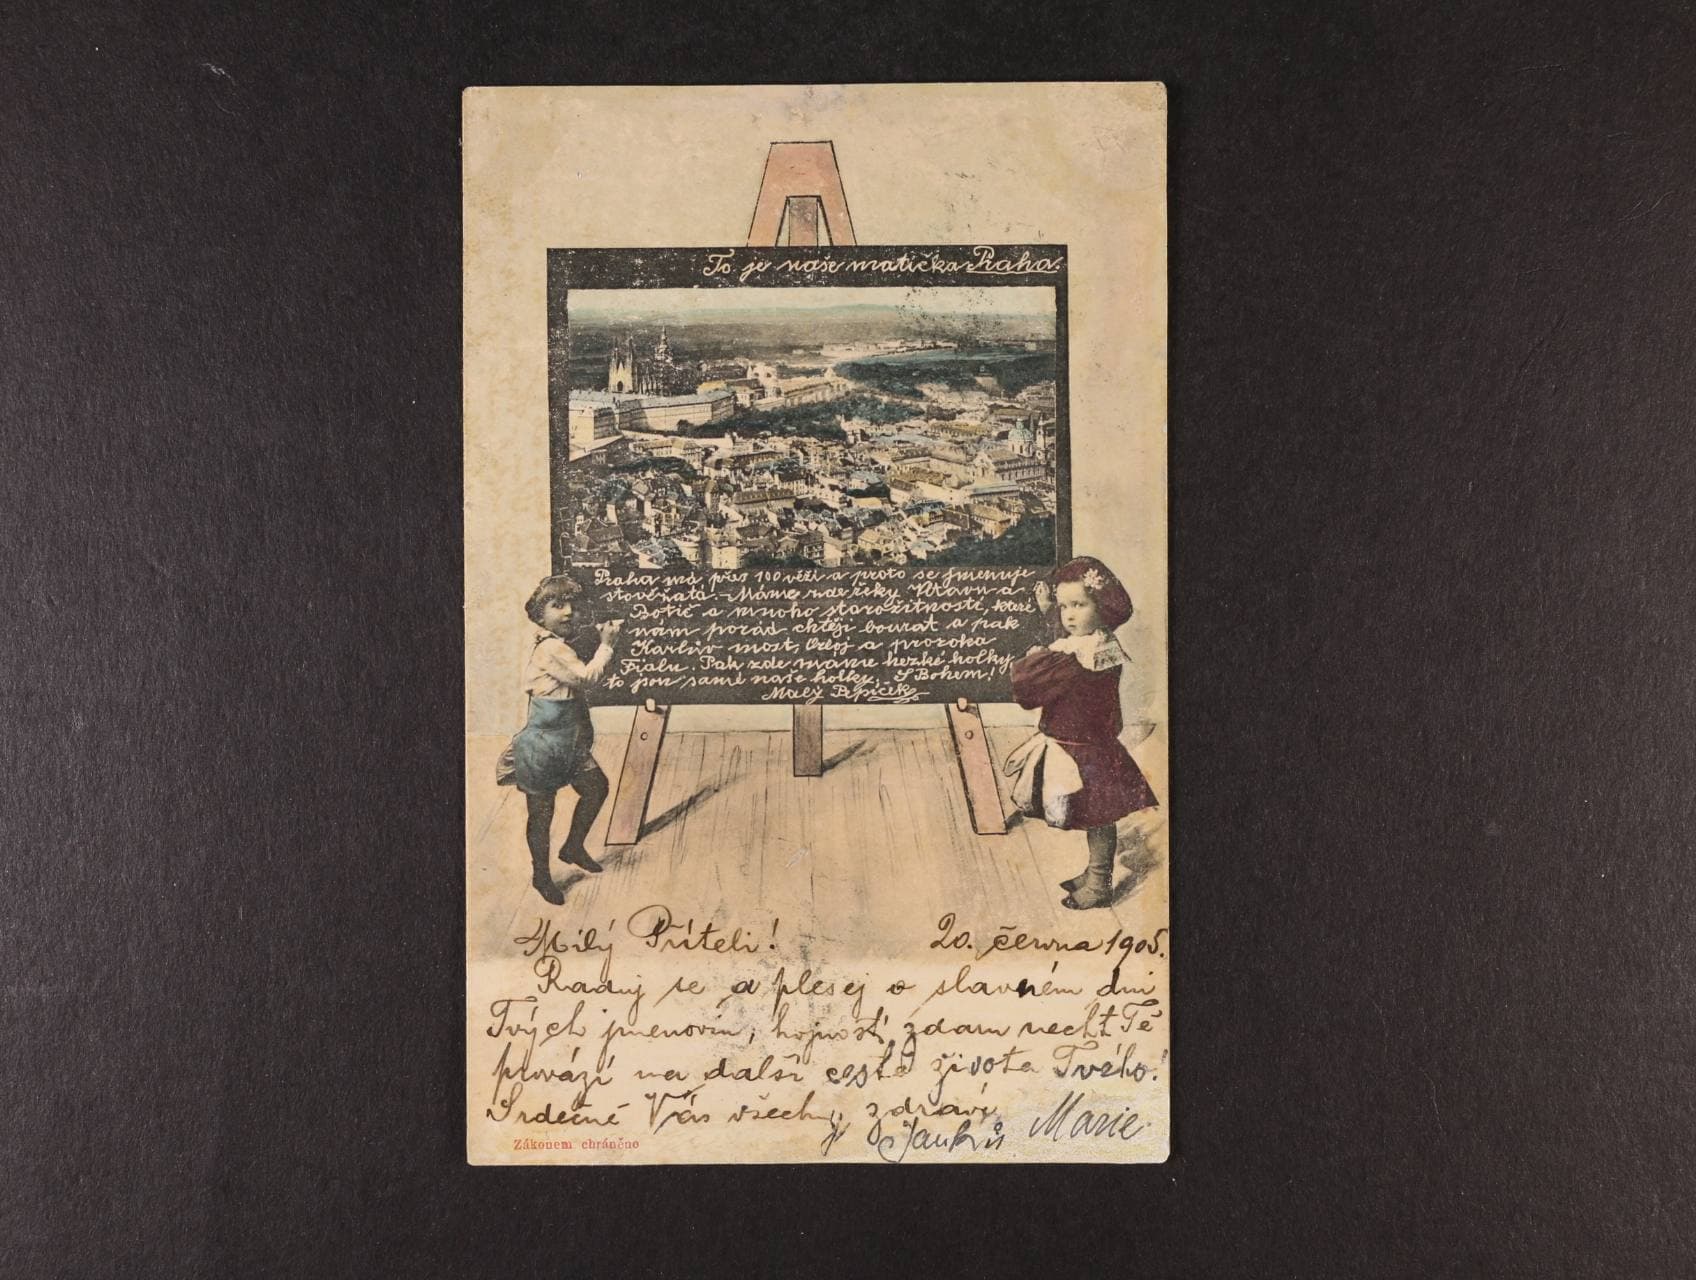 To je naše matička Praha.
Praha má přes 100 věží a proto se jmenuje
stověžatá. - Máme zde řeky Vltavu a
Botič a mnoho starožitností, které
nám pořád chtějí bourat a pak
Karlův most, Orloj a proroka
Fialu. Pak zde máme hezké holky,
to jsou samé naše holky. S Bohem!
Malý Pepíček
Milý Příteli! 20. června 1905.
Raduj se a plesej o slavném dni
Tvých jmenovin, hojnost zdaru nechť Tě
provází na další cestě života Tvého!
Srdečně Vás všechny zdraví
Marie
Zákonem chráněno